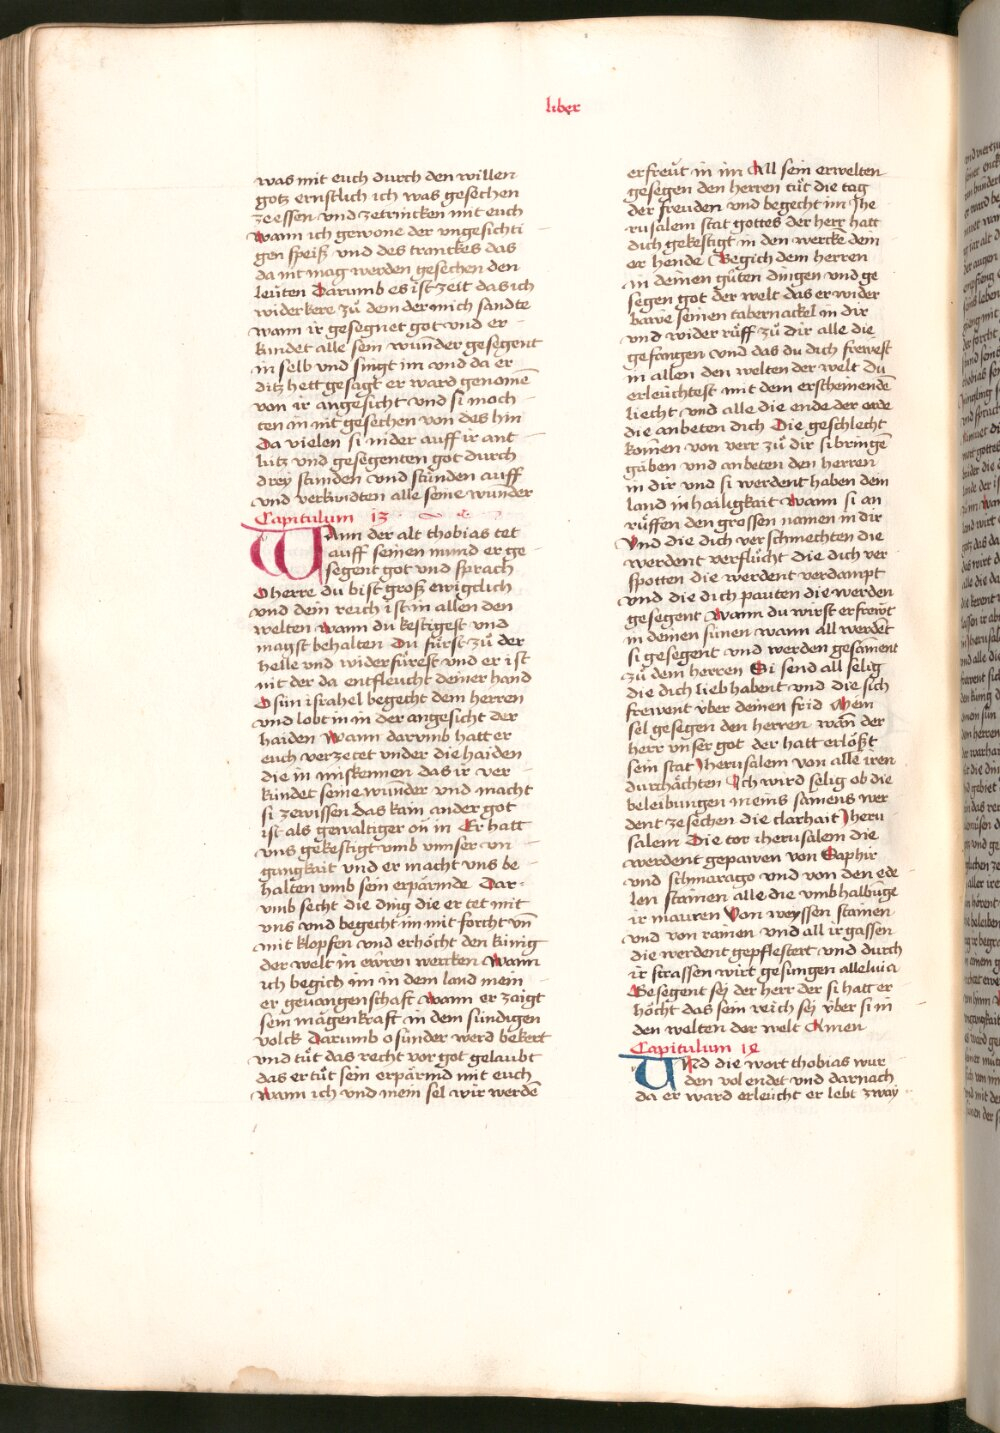 liber
was mit euch durch den willen
gotz ernstlich ich was gesechen
ze essen vnd zetrincken mit euch
wann ich gewone der vngesichti
gen speiß vnd des tranckes das
da nit mag werden gesechen den
leuͤten Darumb es ist zeit das ich
widerkere zuͦ dem der mich sandte
wann ir gesegnet got vnd er
kuͤndet alle sein wunder gesegent
in selb vnd singt im vnd da er
ditz hett gesagt er ward genomē
von ir angesicht vnd si moch
ten in nit gesechen von des hin
Da vielen si nider auff ir ant
lutz vnd gesegenten got durch
drey stunden vnd stuͤnden auff
vnd verkuͤndten alle seine wunder
Capitulum 13
Wann der alt thobias tet
auff seinen mund er ge
segent got vnd sprach
O herre du bist groß ewigclich
vnd dein reich ist in allen den
welten wann du kestigest vnd
magst behalten Du fuͤrst zuͦ der
helle vnd widerfuͤrest vnd er ist
nit der da entfleucht deiner hand
O sun israhel begecht dem herren
vnd lobt in in der angesicht der
haiden Wann darumb hatt er
euch verzetet vnder die haiden
die in miskennen das ir ver
kuͤndet seine wunder vnd macht
si zewissen das kain ander got
ist als gewaltiger on in Er hatt
vns gekestigt vmb vnnser vn
gangkait vnd er macht vns be
halten vmb sein erpaͤrmde Dar
vmb secht die ding die er tet mit
vns vnd begecht im mit forcht vn̄
mit klopfen vnd erhoͤcht den kuͤnig
der welt in ewren wercken Wann
ich begich im in dem land mein
er geuangenschaft wann er zaigt
sein maͤgenkraft in dem suͤndigen
volck Darumb o suͤnder werd bekert
vnd tuͦt das recht vor got gelaubt
das er tuͦt sein erpaͤrmd mit euch
Wann ich vnd mein sel wir werdē
erfreuͤt in im All sein erwelten
gesegen den herren tuͦt die tag
der freuden vnd begecht im Jhe
rusalem stat gottes der herr hatt
dich gekestigt in den wercke dein
er hende Begich dem herren
in deinen guͤten dingen vnd ge
segen got der welt das er wider
bawe seinen tabernackel in dir
vnd wider ruͤff zuͦ dir alle die
gefangen vnd das du dich frewest
in allen den welten der welt Du
erleuͤchtest mit dem erscheinendē
liecht vnd alle die ende der erde
die anbeten dich Die geschlecht
komen von verr zuͦ dir si bringē
gaben vnd anbeten den herren
in dir vnd si werdent haben dein
land in hailigkait Wann si an
ruͤffen den grossen namen in dir
Vnd die dich verschmechten die
werdent verfluͦcht die dich ver
spotten die werdent verdampt
vnd die dich pauten die werden
gesegent Wann du wirst erfrewt
in deinen suͤnen wann all werdēt
si gesegent vnd werden gesament
zuͦ dem herren Si send all selig
die dich lieb habent vnd die sich
frewent vͤber deinen frid Mein
sel gesegen den herren wan̄ der
herr vnser got der hatt erloͤßt
sein stat Jherusalem von alle iren
durchaͤchten Ich wird selig ob die
beleibungen meins samens wer
dent zesechen die clarhait Jheru
salem Die tor iherusalem die
werdent gepawen von Saphir
vnd schmarago vnd von den ede
len stainen alle die vmbhalbunge
ir mauren Von weyssen stainen
vnd von rainen vnd all ir gassen
die werdent gepflestert vnd durch
ir strassen wirt gesungen alleluia
Gesegent sey der herr der si hatt er
hoͤcht das sein reich sey vͤber si in
den welten der welt Amen
Capitulum 14
Vnd die wort thobias wur
den volendet vnd darnach
da er ward erleuͤcht er lebt zway